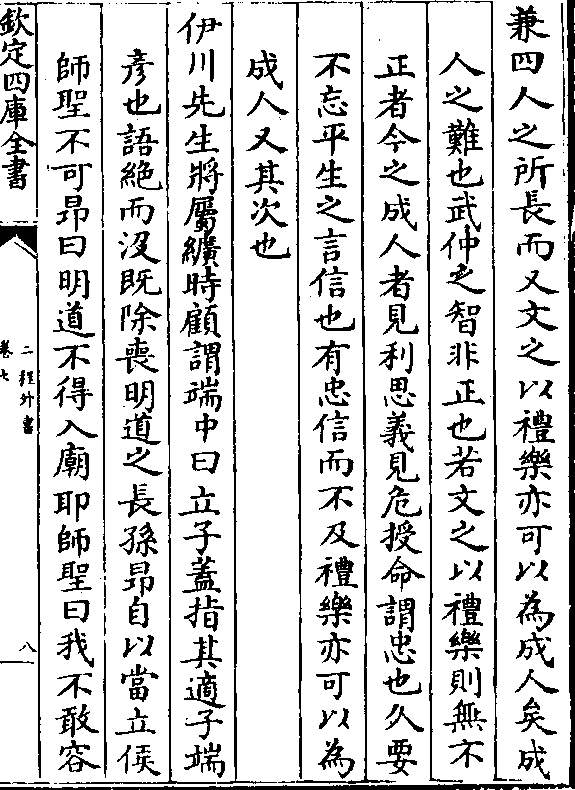 兼四人之所長而又文之以禮樂亦可以為成人矣成
人之難也武仲之智非正也若文之以禮樂則無不
正者今之成人者見利思義見危授命謂忠也久要
不忘平生之言信也有忠信而不及禮樂亦可以為
成人又其次也
伊川先生將屬纊時顧謂端中曰立子蓋指其適子端
彦也語絶而沒既除喪明道之長孫昂自以當立侯
師聖不可昂曰明道不得入廟耶師聖曰我不敢容
欽定四庫全書
二程外書
卷七
八